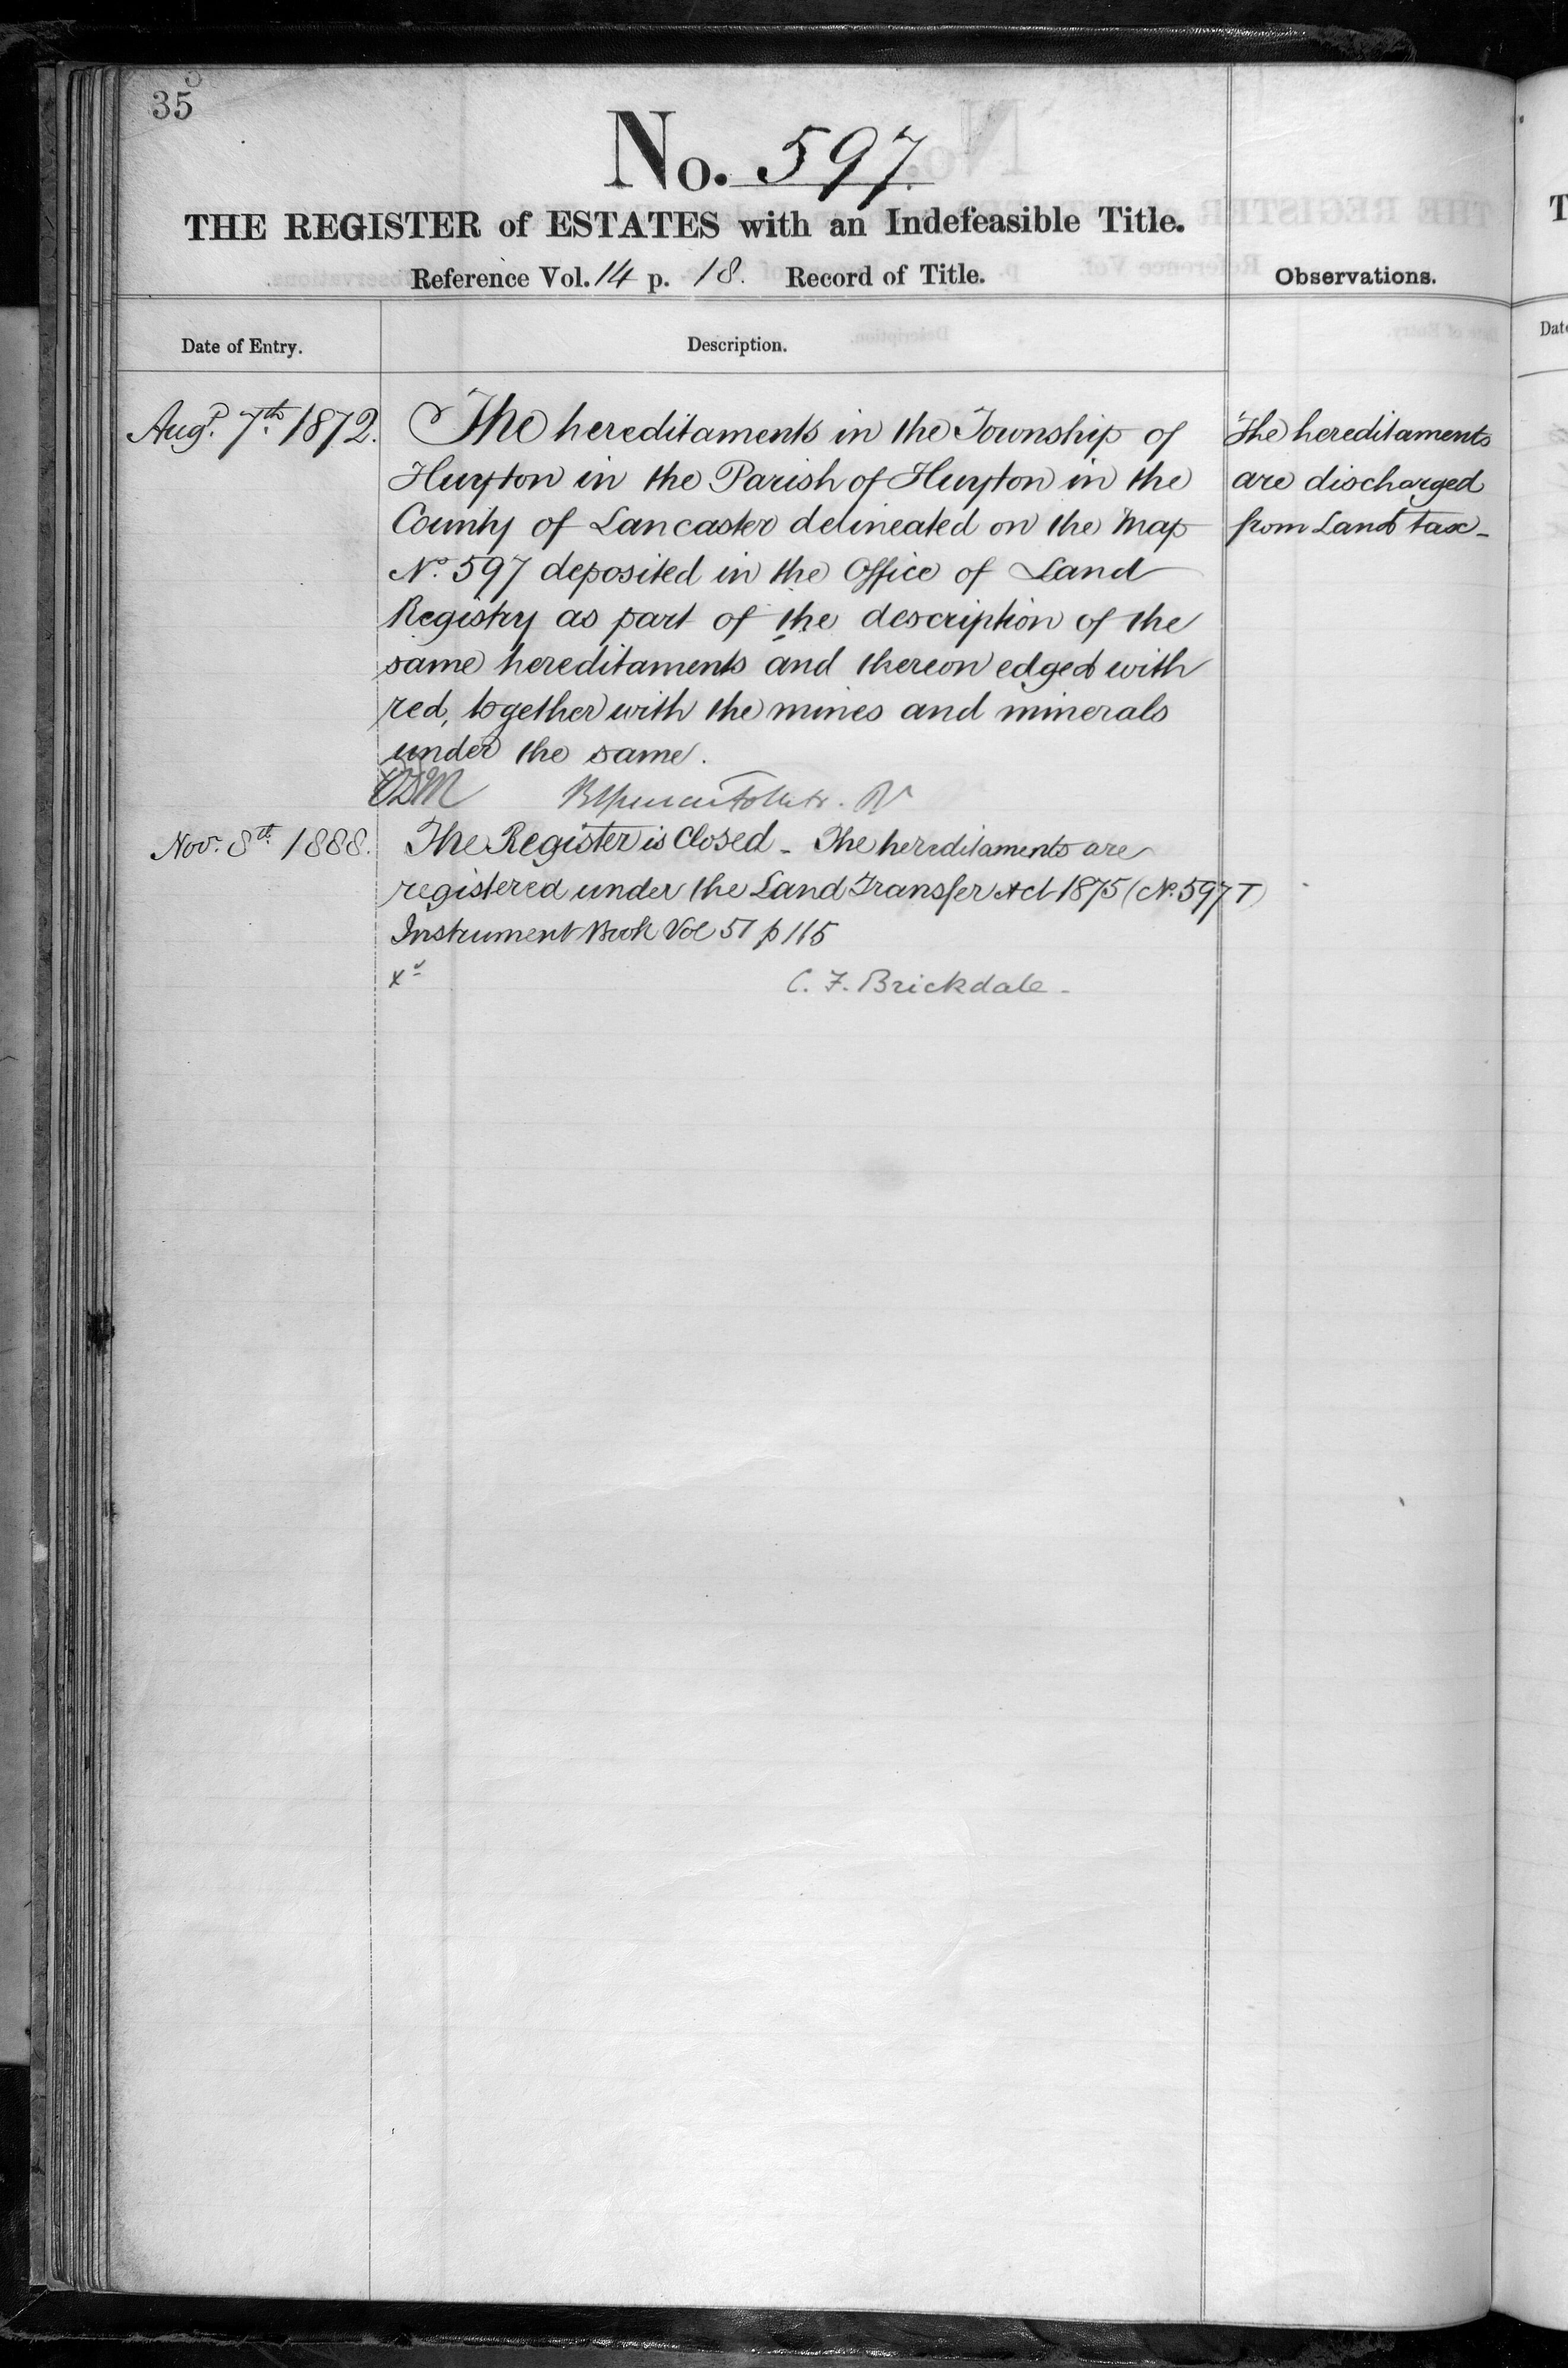 35
No. 597.
THE REGISTER of ESTATES with an Indefeasible Title.
Reference Vol. 14 p. 18. Record of Title.
Observations.
Date of Entry.
Description.
Augt. 7th. 1872.
The hereditaments in the Township of
Huyton in the Parish of Huyton in the
County of Lancaster delineated on the Map
No. 597 deposited in the Office of Land
Registry as part of the description of the
same hereditaments and thereon edged with
red, together with the mines and minerals
under the same.
The hereditaments
are discharged
from Land tax -
Nov. 8th. 1888.
The Register is Closed - The hereditaments are
registered under the Land Transfer Act 1875 (No. 597 T)
Instrument Book Vol 51 p 115
C. F. Brickdale -